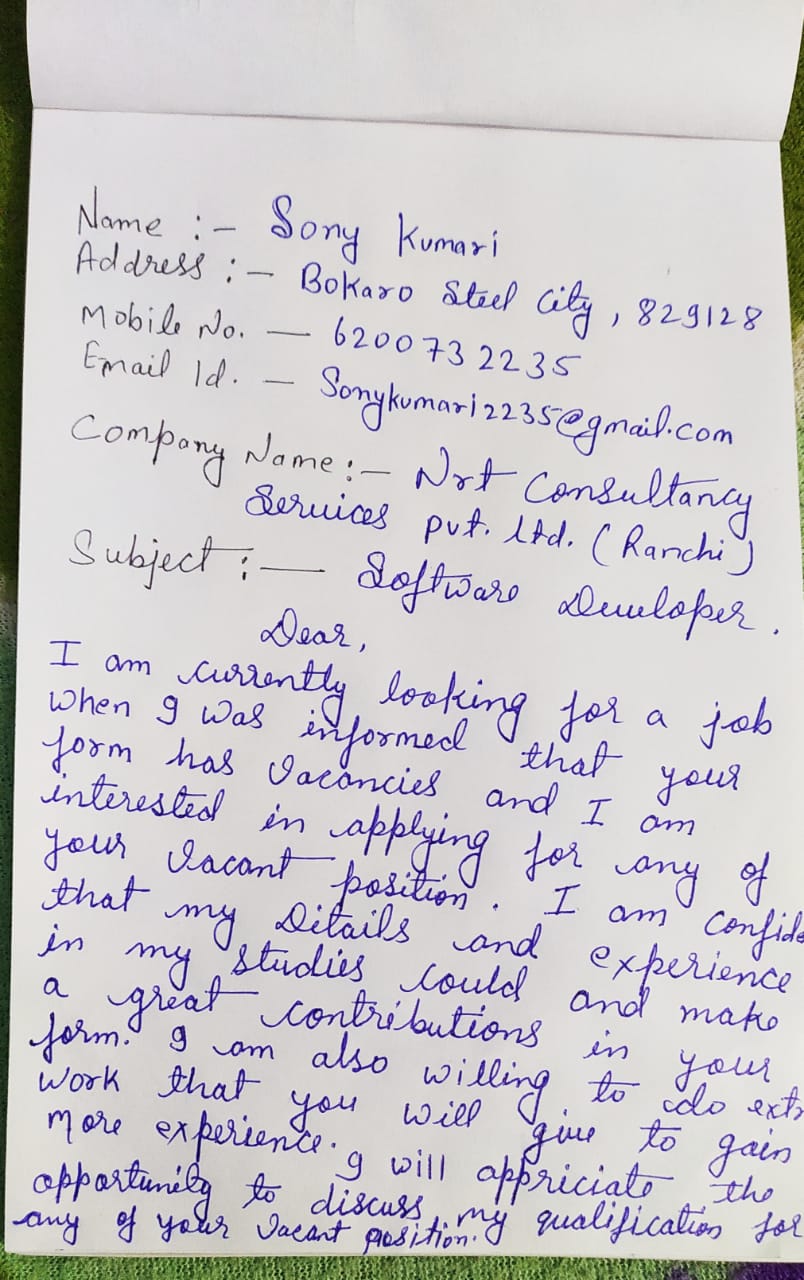 Name :- Sony Kumari
Address :- Bokaro Steel City, 829128
Mobile No. — 6200732235
Email Id. — Sonykumari2235@gmail.com
Company Name :- Nrt Consultancy
Services pvt. ltd. (Ranchi)
Subject :— Software Developer.
Dear,
I am currently looking for a job
When I was informed that your
form has Vacancies and I am
interested in applying for any of
your Vacant position. I am confide
that my Ditails and experience
in my studies could and make
a great contributions in your
form. I am also willing to do ext
work that you will give to gain
more experience. I will appriciate the
opportunity to discuss my qualification for
any of your Vacant position.